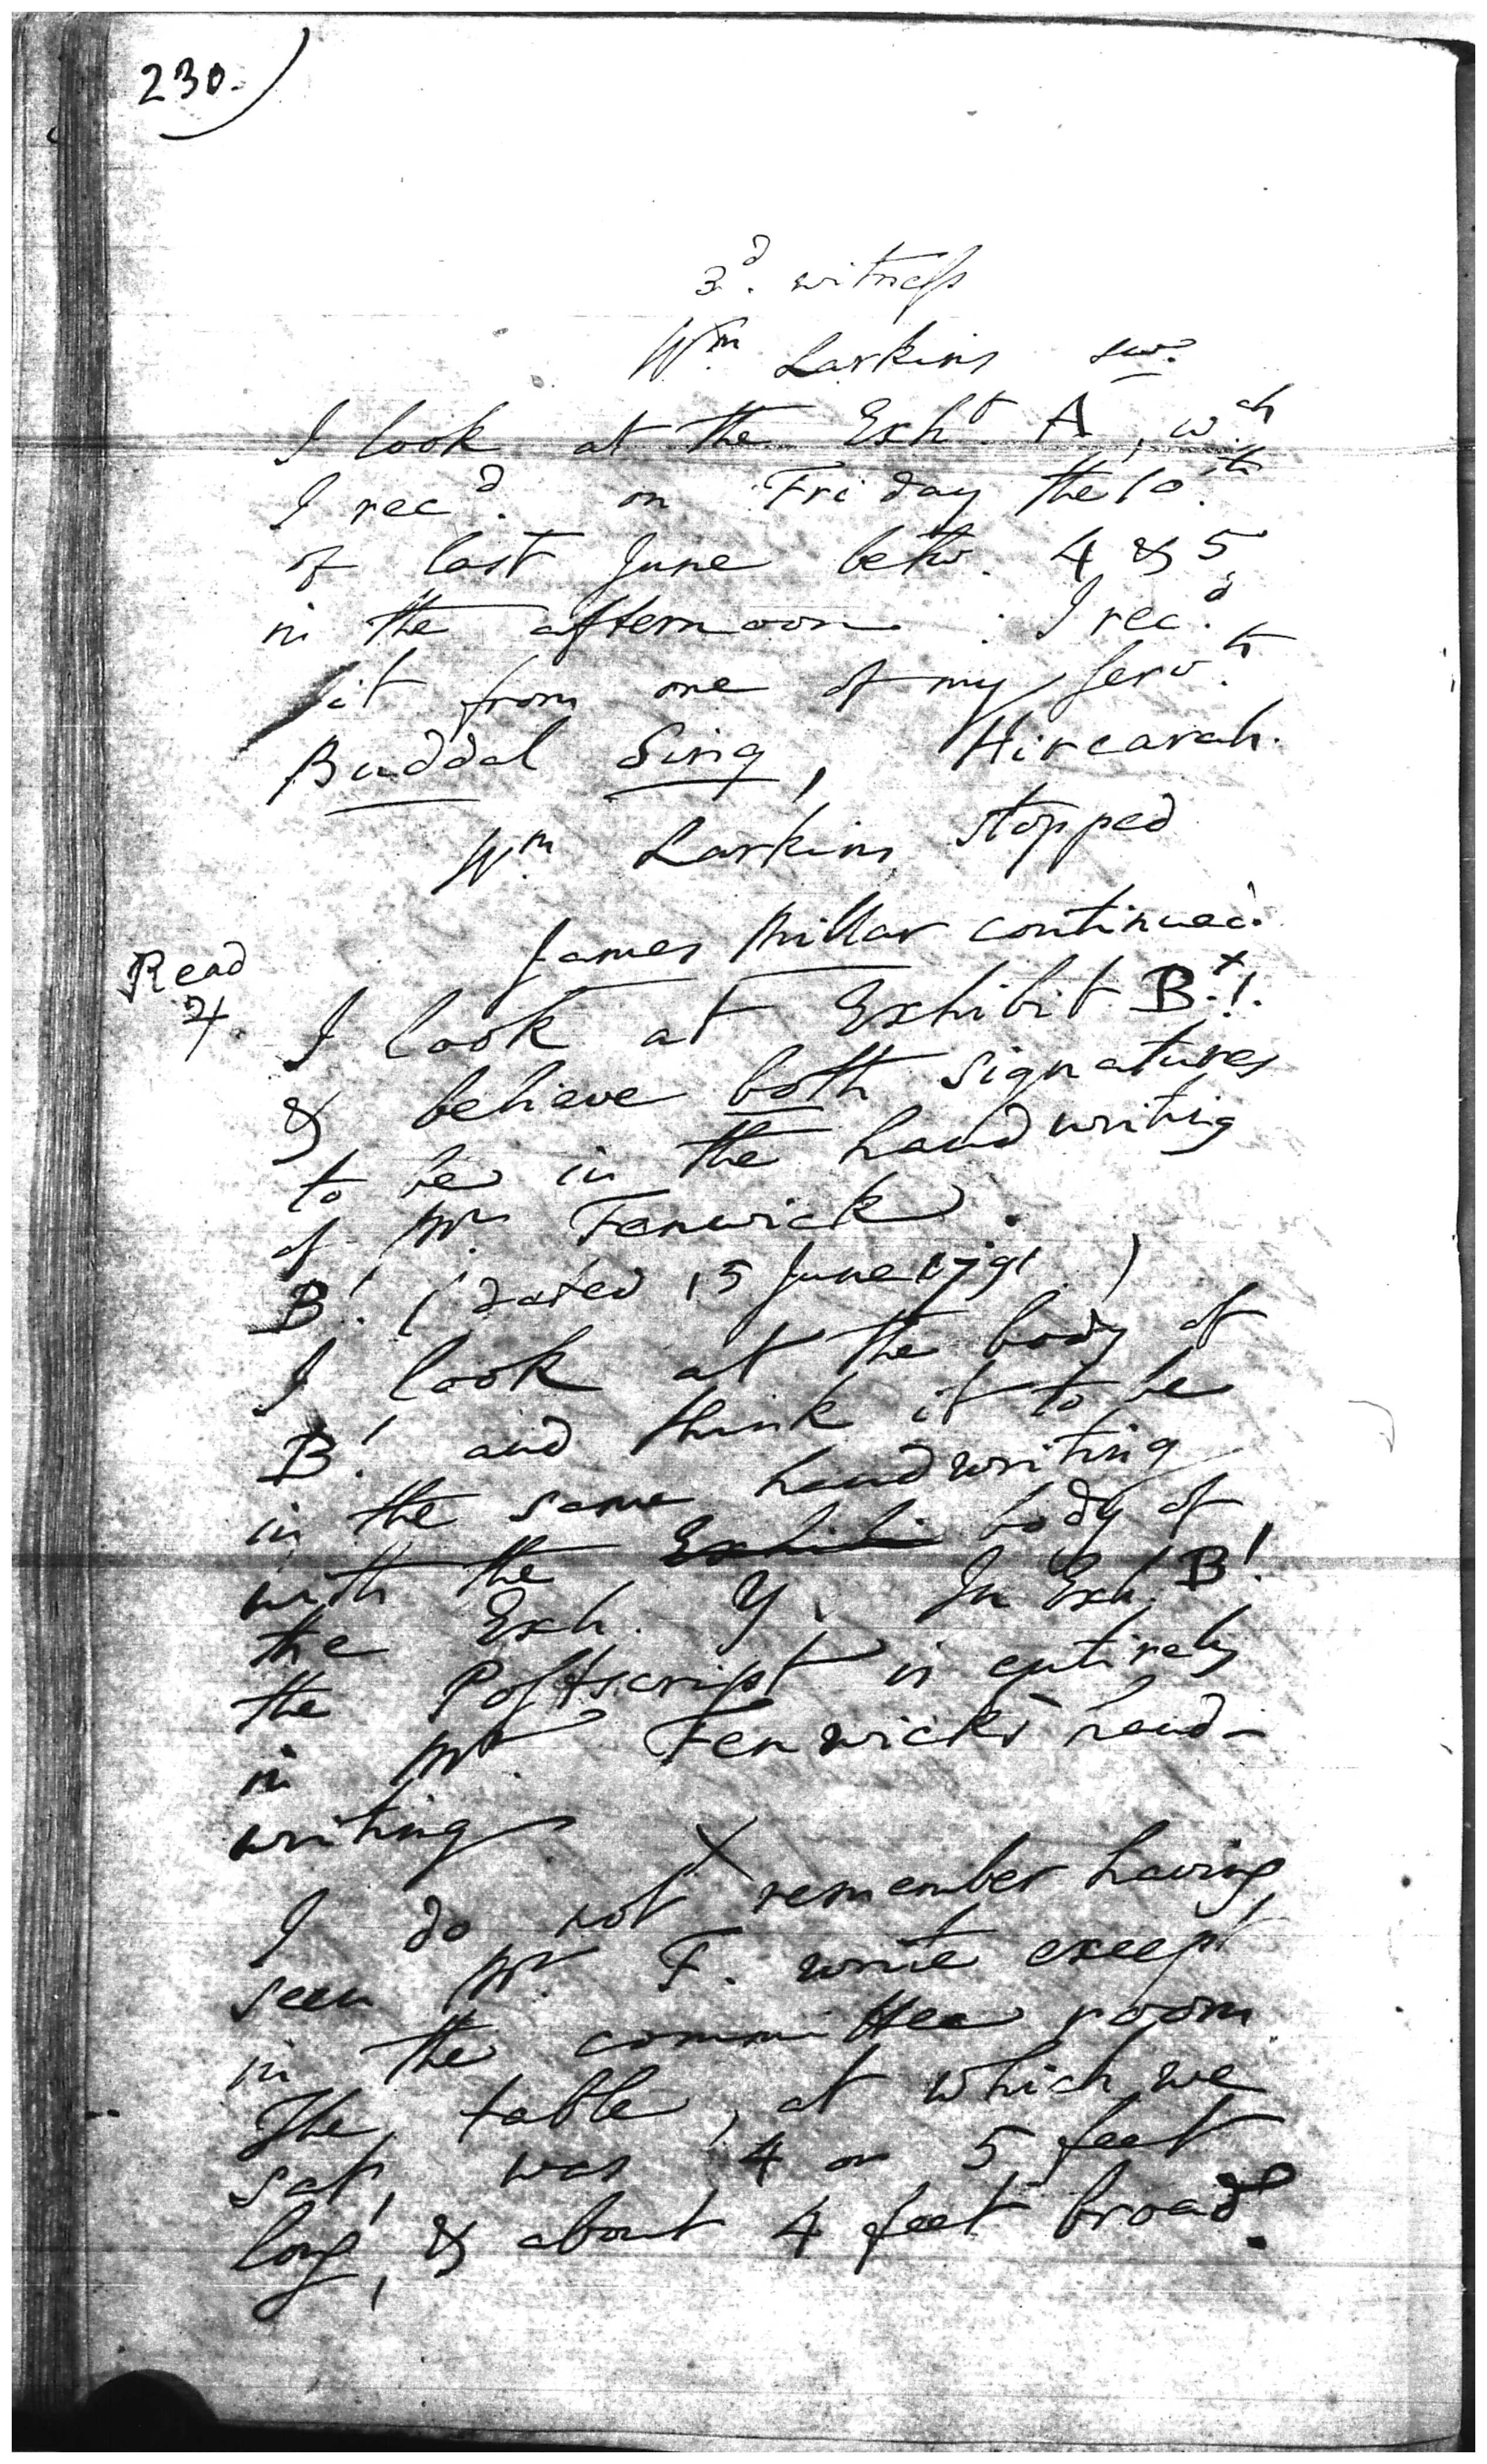 230.)
3d. witness
Wm. Larkins sw.
I look at the Exht. A, wch.
I recd. on Friday the 10th.
of last June betw. 4 & 5
in the afternoon. I recd.
it from one of my servts.
Buddal Sing, Hircarah.
Wm. Larkins stopped
James Millar continued.
Read
4.
I look at Exhibit B.1. X
& believe both signatures
to be in the handwriting
of Mr. Fenwick.
B1. (dated 15 June 1791.)
I look at the body of
B1. and think it to be
in the same handwriting
with the Exhibi body of
the Exh. Y. In Exh. B1.
the Postscript is entirely
in Mr. Fenwick's hand-
writing X
I do not remember having
seen Mr. F. write except
in the committee room
The table, at which we
sat, was 4 or 5 feet
long, & about 4 feet broad.